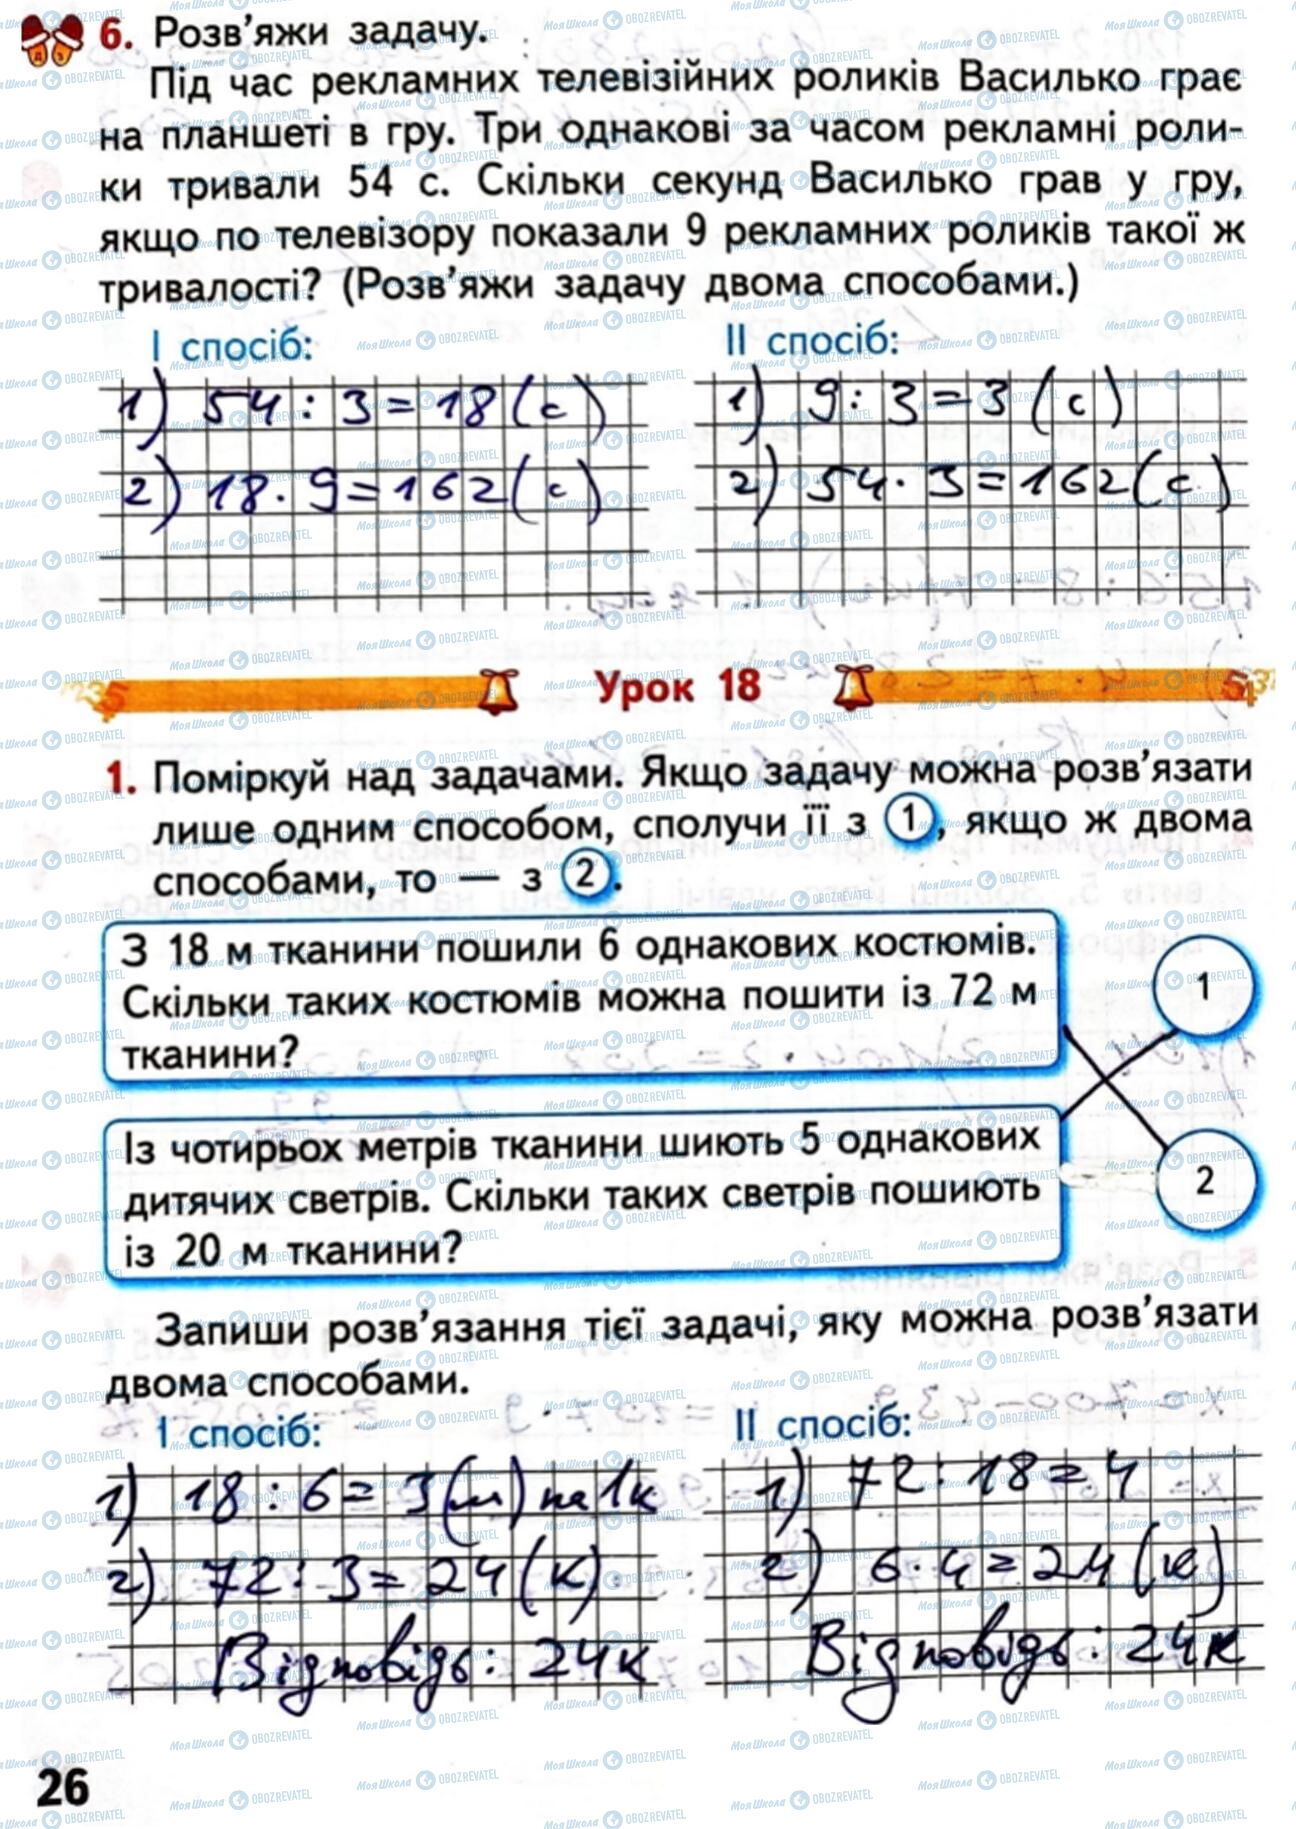 6. Розв'яжи задачу.
Під час рекламних телевізійних роликів Василько грає
на планшеті в гру. Три однакові за часом рекламні роли-
ки тривали 54 с. Скільки секунд Василько грав у гру,
якщо по телевізору показали 9 рекламних роликів такої ж
тривалості? (Розв'яжи задачу двома способами.)
І спосіб:
1) 54 : 3 = 18 (с)
2) 18 · 9 = 162 (с)
ІІ спосіб:
1) 9 : 3 = 3 (с)
2) 54 · 3 = 162 (с)
Урок 18
1. Поміркуй над задачами. Якщо задачу можна розв'язати
лише одним способом, сполучи її з 1, якщо ж двома
способами, то — з 2.
З 18 м тканини пошили 6 однакових костюмів.
Скільки таких костюмів можна пошити із 72 м
тканини?
1
Із чотирьох метрів тканини шиють 5 однакових
дитячих светрів. Скільки таких светрів пошиють
із 20 м тканини?
2
Запиши розв'язання тієї задачі, яку можна розв'язати
двома способами.
І спосіб:
1) 18 : 6 = 3 (м) на 1 к
2) 72 : 3 = 24 (к)
Відповідь: 24 к
ІІ спосіб:
1) 72 : 18 = 4
2) 6 · 4 = 24 (к)
Відповідь: 24 к
26
МояШкола OBOZREVATEL